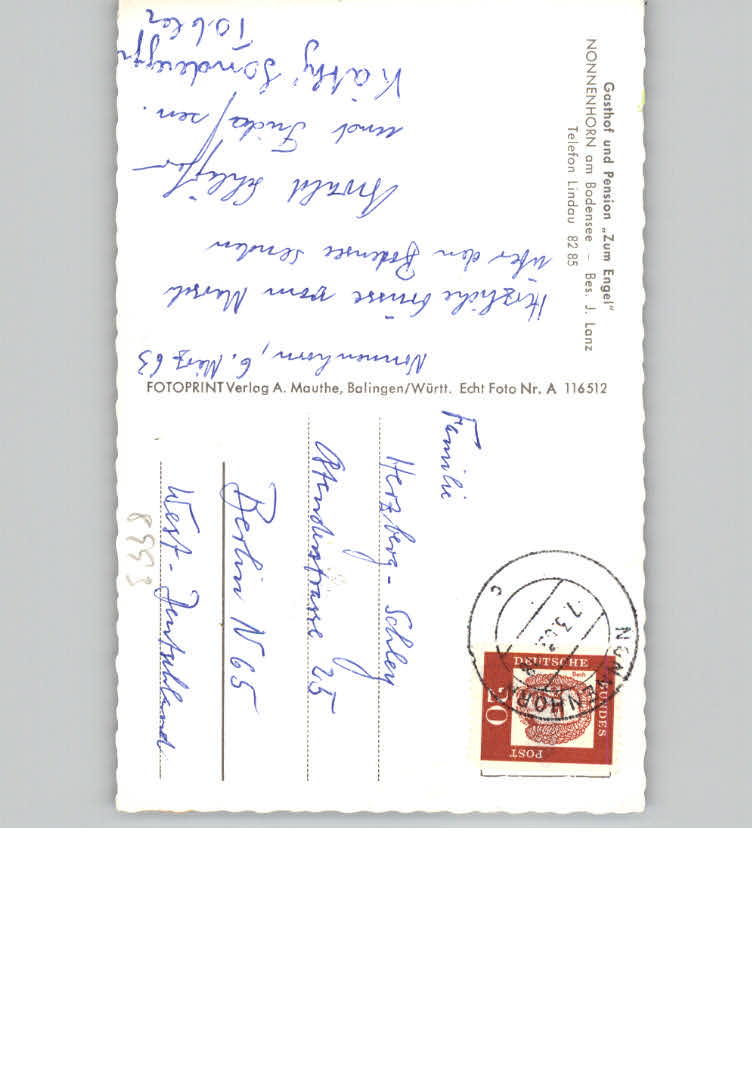 Gasthof und Pension „Zum Engel"
NONNENHORN am Bodensee – Bes. J. Lanz
Telefon Lindau 82 85
Nonnenhorn, 6. März 63
Herzliche Grüsse vom Marsch
über den Bodensee senden
Arnold Schläpfer
und Frieda
Käthy Sonderegger
Tobler
FOTOPRINT Verlag A. Mauthe, Balingen/Württ. Echt Foto Nr. A 116512
Familie
Herzberg - Schley
Ostenderstrasse 25
Berlin N 65
West - Deutschland
NONNENHORN
7.3.63
c
DEUTSCHE
BUNDES
POST
20
Bach